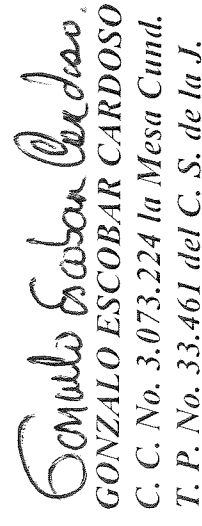 Gonzalo Escobar Cardoso.
GONZALO ESCOBAR CARDOSO
C. C. No. 3.073.224 la Mesa Cund.
T. P. No. 33.461 del C. S. de la J.